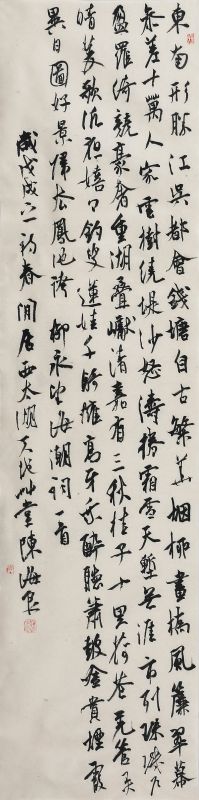 東南形勝江吳都會錢塘自古繁華烟柳畫橋風簾翠幕
參差十萬人家雲樹繞堤沙怒濤捲霜雪天塹無涯市列珠璣户
盈羅綺競豪奢重湖疊巘清嘉有三秋桂子十里荷花羌管弄
晴菱歌泛夜嬉〻釣叟蓮娃千騎擁高牙乘醉聽蕭鼓吟賞煙霞
異日圖好景歸去鳳池誇 柳永望海潮詞一首
歲戊戌之初春閒居西太湖堂陳海良